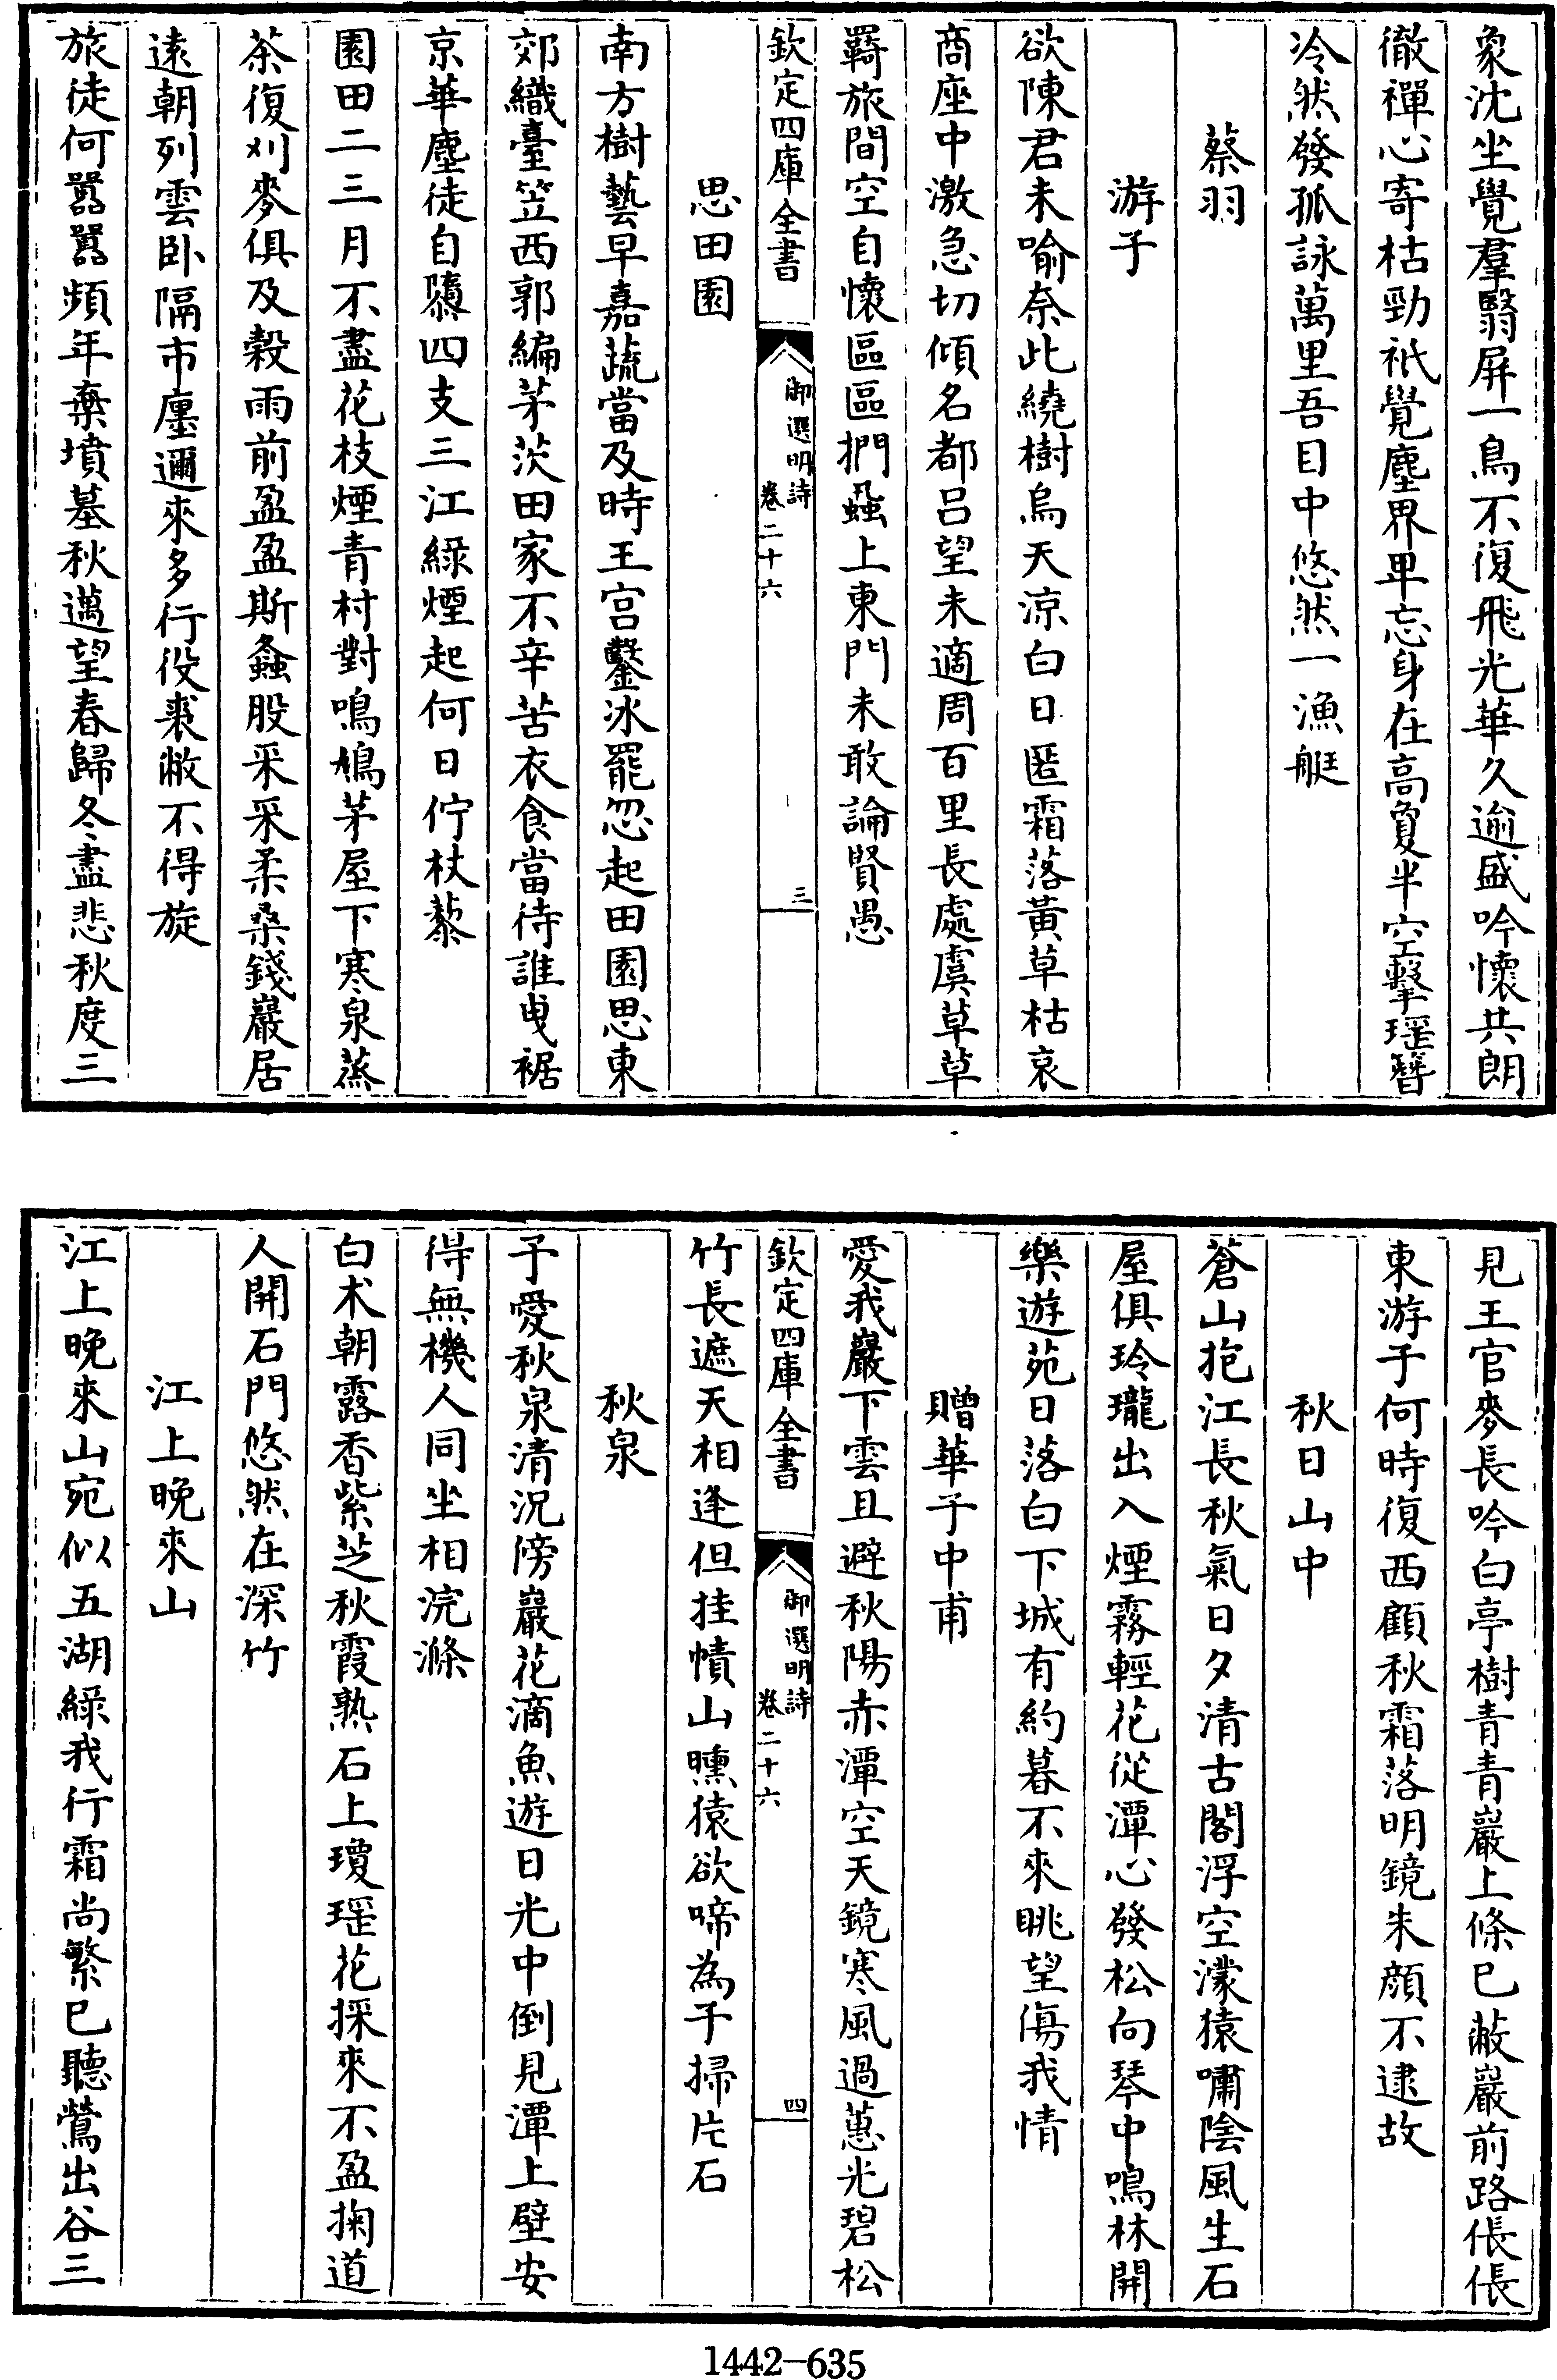 象沈坐覺羣翳屏一鳥不復飛光華久逾盛吟懷共朗
徹禪心寄枯勁祇覺塵界卑忘身在高敻半空擊瑶磬
冷然發孤詠萬里吾目中悠然一漁艇
蔡羽
游子
欲陳君未喻奈此繞樹烏天涼白日匿霜落黃草枯哀
商座中激急切傾名都吕望未適周百里長處虞草草
羇旅間空自懷區區捫蝨上東門未敢論賢愚
欽定四庫全書
御選明詩
卷二十六
三
思田園
南方樹藝早嘉蔬當及時王宫鑿冰罷忽起田園思東
郊織臺笠西郭編茅茨田家不辛苦衣食當待誰曵裾
京華塵徒自隳四支三江綠煙起何日佇杖藜
園田二三月不盡花枝煙青村對鳴鳩茅屋下寒泉蒸
茶復刈麥俱及榖雨前盈盈斯螽股采采柔桑錢巖居
遠朝列雲卧隔市廛邇來多行役裘敝不得旋
旅徒何嚣嚣頻年棄墳墓秋邁望春歸冬盡悲秋度三
見王官麥長吟白亭樹青青巖上條已蔽巖前路倀倀
東游子何時復西顧秋霜落明鏡朱顔不逮故
秋日山中
蒼山抱江長秋氣日夕清古閣浮空濛猿嘯陰風生石
屋俱玲瓏出入煙霧輕花從潭心發松向琴中鳴林開
樂遊苑日落白下城有約暮不來眺望傷我情
贈華子中甫
愛我巖下雲且避秋陽赤潭空天鏡寒風過蕙光碧松
欽定四庫全書
御選明詩
卷二十六
四
竹長遮天相逢但挂幘山曛猿欲啼為子掃片石
秋泉
子愛秋泉清況傍巖花滴魚遊日光中倒見潭上壁安
得無機人同坐相浣滌
白术朝露香紫芝秋霞熟石上瓊瑶花採來不盈掬道
人開石門悠然在深竹
江上晚來山
江上晚來山宛似五湖綠我行霜尚繁已聽鶯出谷三
1442—635